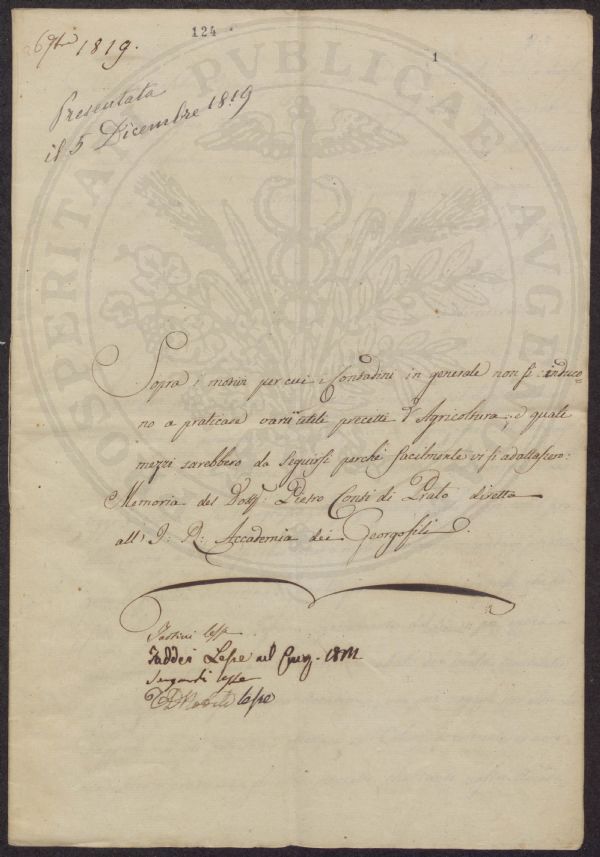 124
1
1819.
Presentata
il 5 Dicembre 1819
PROSPERITATI PVBLICAE AVGENDAE
Sopra i motivi per cui i Contadini in generale non si induco=
no a praticare varii utili precetti d'Agricoltura, e quale
mezzi sarebbero da seguirsi perchè facilmente vi si adattassero:
Memoria del Dott: Pietro Conti di Prato diretta
all'I: R: Accademia dei Georgofili.
lesse
Taddei Lesse
lesse
lesse